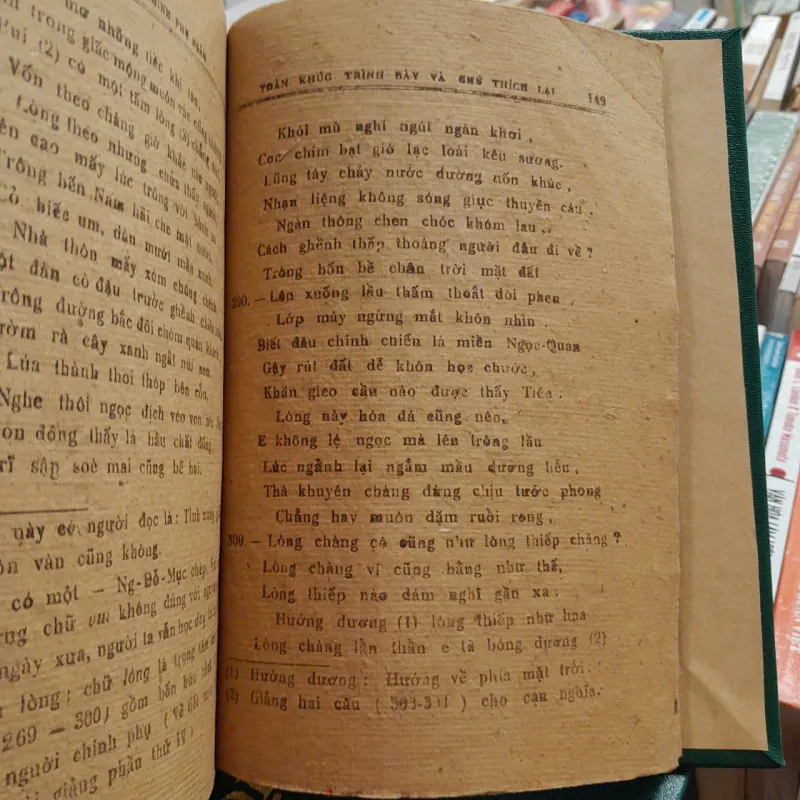 mơ những tiếc khi tàn,
trong giấc mộng muôn vàn cũng không
vui (2) có một tấm lòng (3) chẳng
Vốn theo chàng giờ khắc nào nguôi
Lòng theo nhưng chửa thấy người
lên cao mấy lúc trông vời bánh xe
Trông bến Nam bãi che mặt nước
Cỏ biếc um, dâu mướt mầu xanh
Nhà thôn mấy xóm chông chênh
một đàn cò đậu trước ghềnh chiều
Trông đường bắc đôi chòm quán khách
rờm rà cây xanh ngắt núi non
Lúa thành thoi thóp bên cồn,
Nghe thôi ngọc địch véo von bên lầu
non đông thấy lá hầu chất đống
trĩ sập soè mai cũng bẻ bai,
này có người đọc là: Tình trong
muôn vàn cũng không.
có một — Ng-Đỗ-Mục chép
chữ vui không đúng với
ngày xưa, người ta vẫn học
lòng: chữ lòng là trọng tâm
269 — 300) gồm bốn bức
người chinh phụ (Về tiết
giảng phần thứ IV)
TOÀN KHÚC TRÌNH BÀY VÀ CHÚ THÍCH LẠI 149
Khói mù nghi ngút ngàn khơi,
Con chim bạt gió lạc loài kêu sương.
Lũng tây chảy nước dường uốn khúc,
Nhạn liệng không sóng giục thuyền câu.
Ngàn thông chen chóc khóm lau,
Cách ghềnh thấp thoáng người đâu đi về?
Trông bốn bề chân trời mặt đất
290. — Lên xuống lầu thấm thoắt đòi phen
Lớp mây ngừng mắt khôn nhìn.
Biết đâu chinh chiến là miền Ngọc-Quan
Gậy rút đất dễ khôn học chước,
Khăn gieo cầu nào được thấy Tiên.
Lòng này hóa đá cũng nên,
E không lệ ngọc mà lên trông lầu
Lúc ngảnh lại ngắm mầu dương liễu,
Thà khuyên chàng đừng chịu tước phong
Chẳng hay muôn dặm ruồi rong,
300. — Lòng chàng có cũng như lòng thiếp chăng?
Lòng chàng ví cũng bằng như thế,
Lòng thiếp nào dám nghĩ gần xa:
Hướng dương (1) lòng thiếp như hoa
Lòng chàng lẩn thẩn e tà bóng dương (2)
(1) Hướng dương: Hướng về phía mặt trời.
(2) Giảng hai câu (303-304) cho cạn nghĩa.